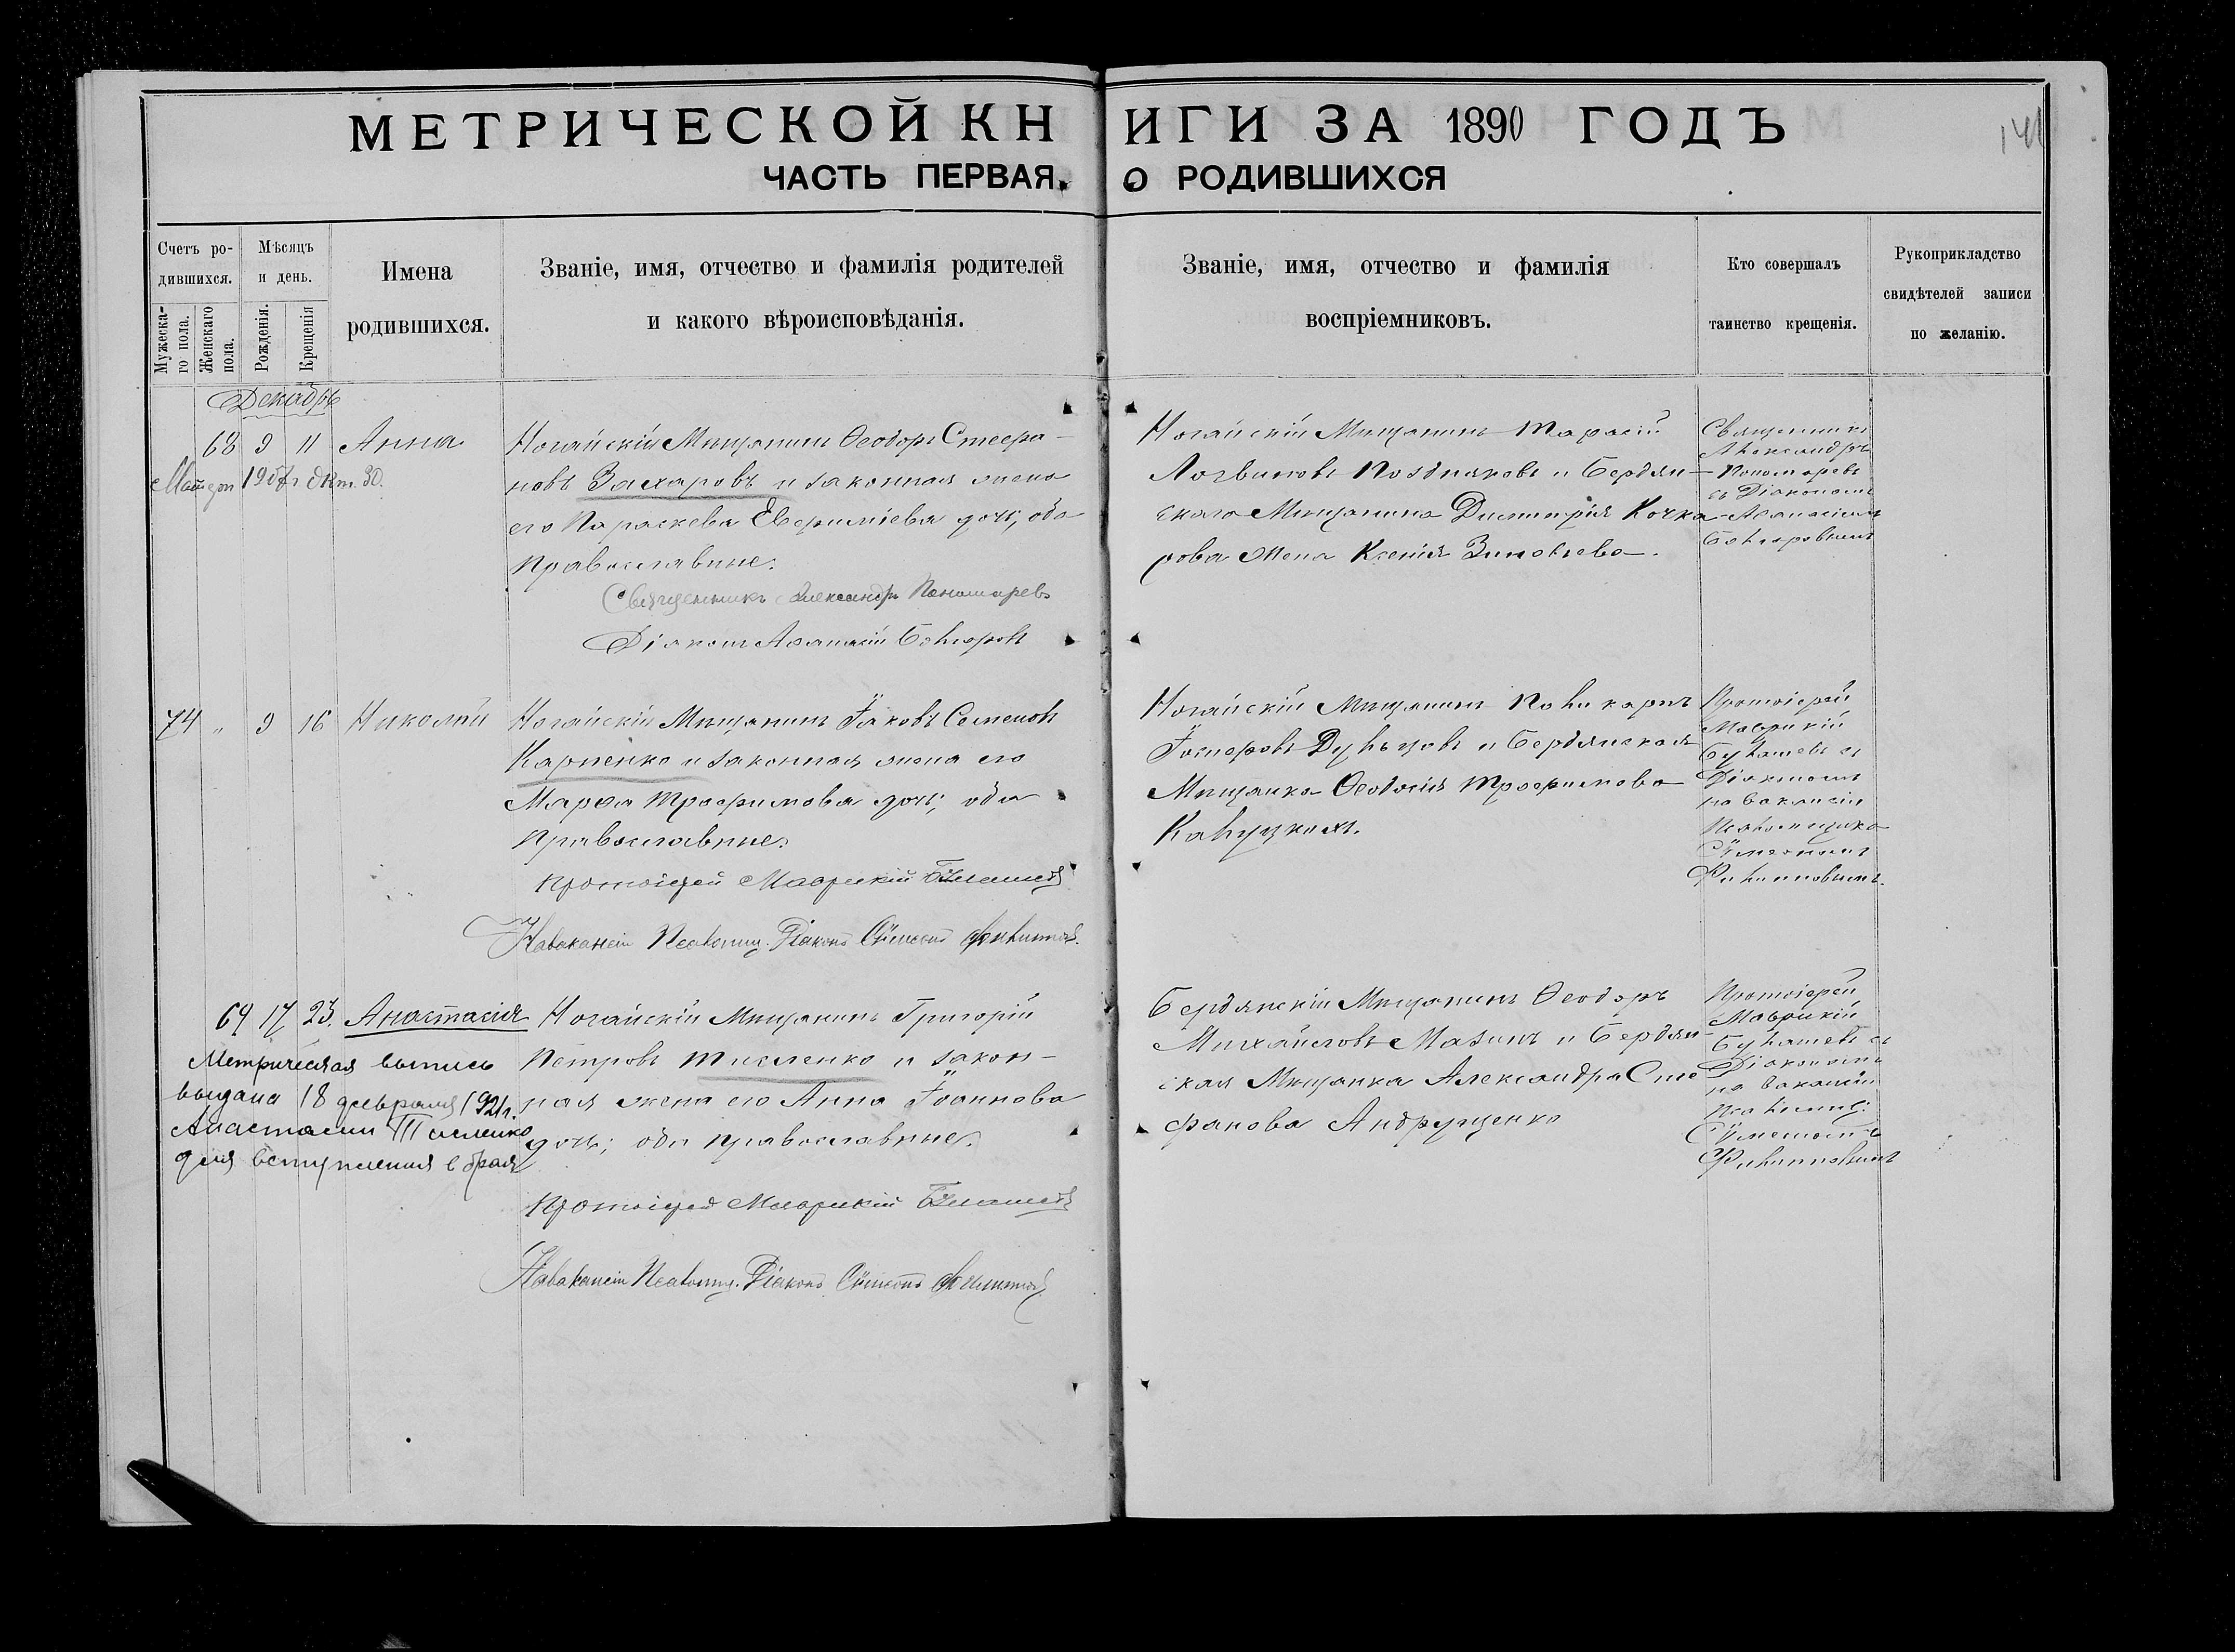 МЕТРИЧЕСКОЙ КНИГИ ЗА 1890 ГОДЪ
141
ЧАСТЬ ПЕРВАЯ. О РОДИВШИХСЯ
Счетъ ро-
дившихся.
Мужеска-
го пола.
Женскаго
пола.
Мѣсяцъ
и день.
Рожденія.
Крещенія
Имена
родившихся.
Званіе, имя, отчество и фамилія родителей
и какого вѣроисповѣданія.
Званіе, имя, отчество и фамилія
воспріемниковъ.
Кто совершалъ
таинство крещенія.
Рукоприкладство
свидѣтелей записи
по желанію.
Декабрь
68 9 11 Анна
Ногайскій Мищанинъ Ѳеодоръ Стефа-
новъ Захаровъ и законная жена
его Параскева Евфиміева дочь; оба
православные.
Священникъ Александръ Пономаревъ
Діаконъ Аѳанасій
Ногайскій Мищанинъ Тарасій
Логвиновъ Поздняковъ и Бердян-
скаго Мищанина Димитрія Кочка
рова жена Ксенія Зиновіева.
Священникъ
Александръ
Пономаревъ
съ Діакономъ
Аѳанасіемъ
74 " 9 16 Николай
Ногайскій Мищанинъ Іаковъ Семеновъ
Карпенко и законная жена его
Марѳа Трофимова дочь; оба
православные.
Протоіерей Маврикій Булашевъ
На вакансіи Псаломщ. Діаконъ Сѵмеонъ Филипповъ.
Ногайскій Мищанинъ Поликарпъ
Дульцовъ и Бердянская
Мищанка Ѳеодосія Трофимова
Калуцкая.
Протоіерей
Маврикій
Булашевъ съ
Діакономъ
на вакансіи
Псаломщика
Сѵмеономъ
Филипповымъ.
69 17 23. Анастасія
Метрическая выпись
выдана 18 февраля 1921 г.
Анастасии Тисленко
для вступления в брак
Ногайскій Мищанинъ Григорій
Петровъ Тисленко и закон-
ная жена его Анна Іоаннова
дочь; оба православные.
Протоіерей Маврикій Булашевъ
На вакансіи Псаломщ. Діаконъ Сѵмеонъ Филипповъ
Бердянскій Мищанинъ Ѳеодоръ
Михайловъ Мазинъ и Бердян-
ская Мищанка Александра Сте
фанова Андрущенко
Протоіерей
Маврикій
Булашевъ съ
Діакономъ
на вакансіи
Псаломщ.
Сѵмеономъ
Филипповымъ